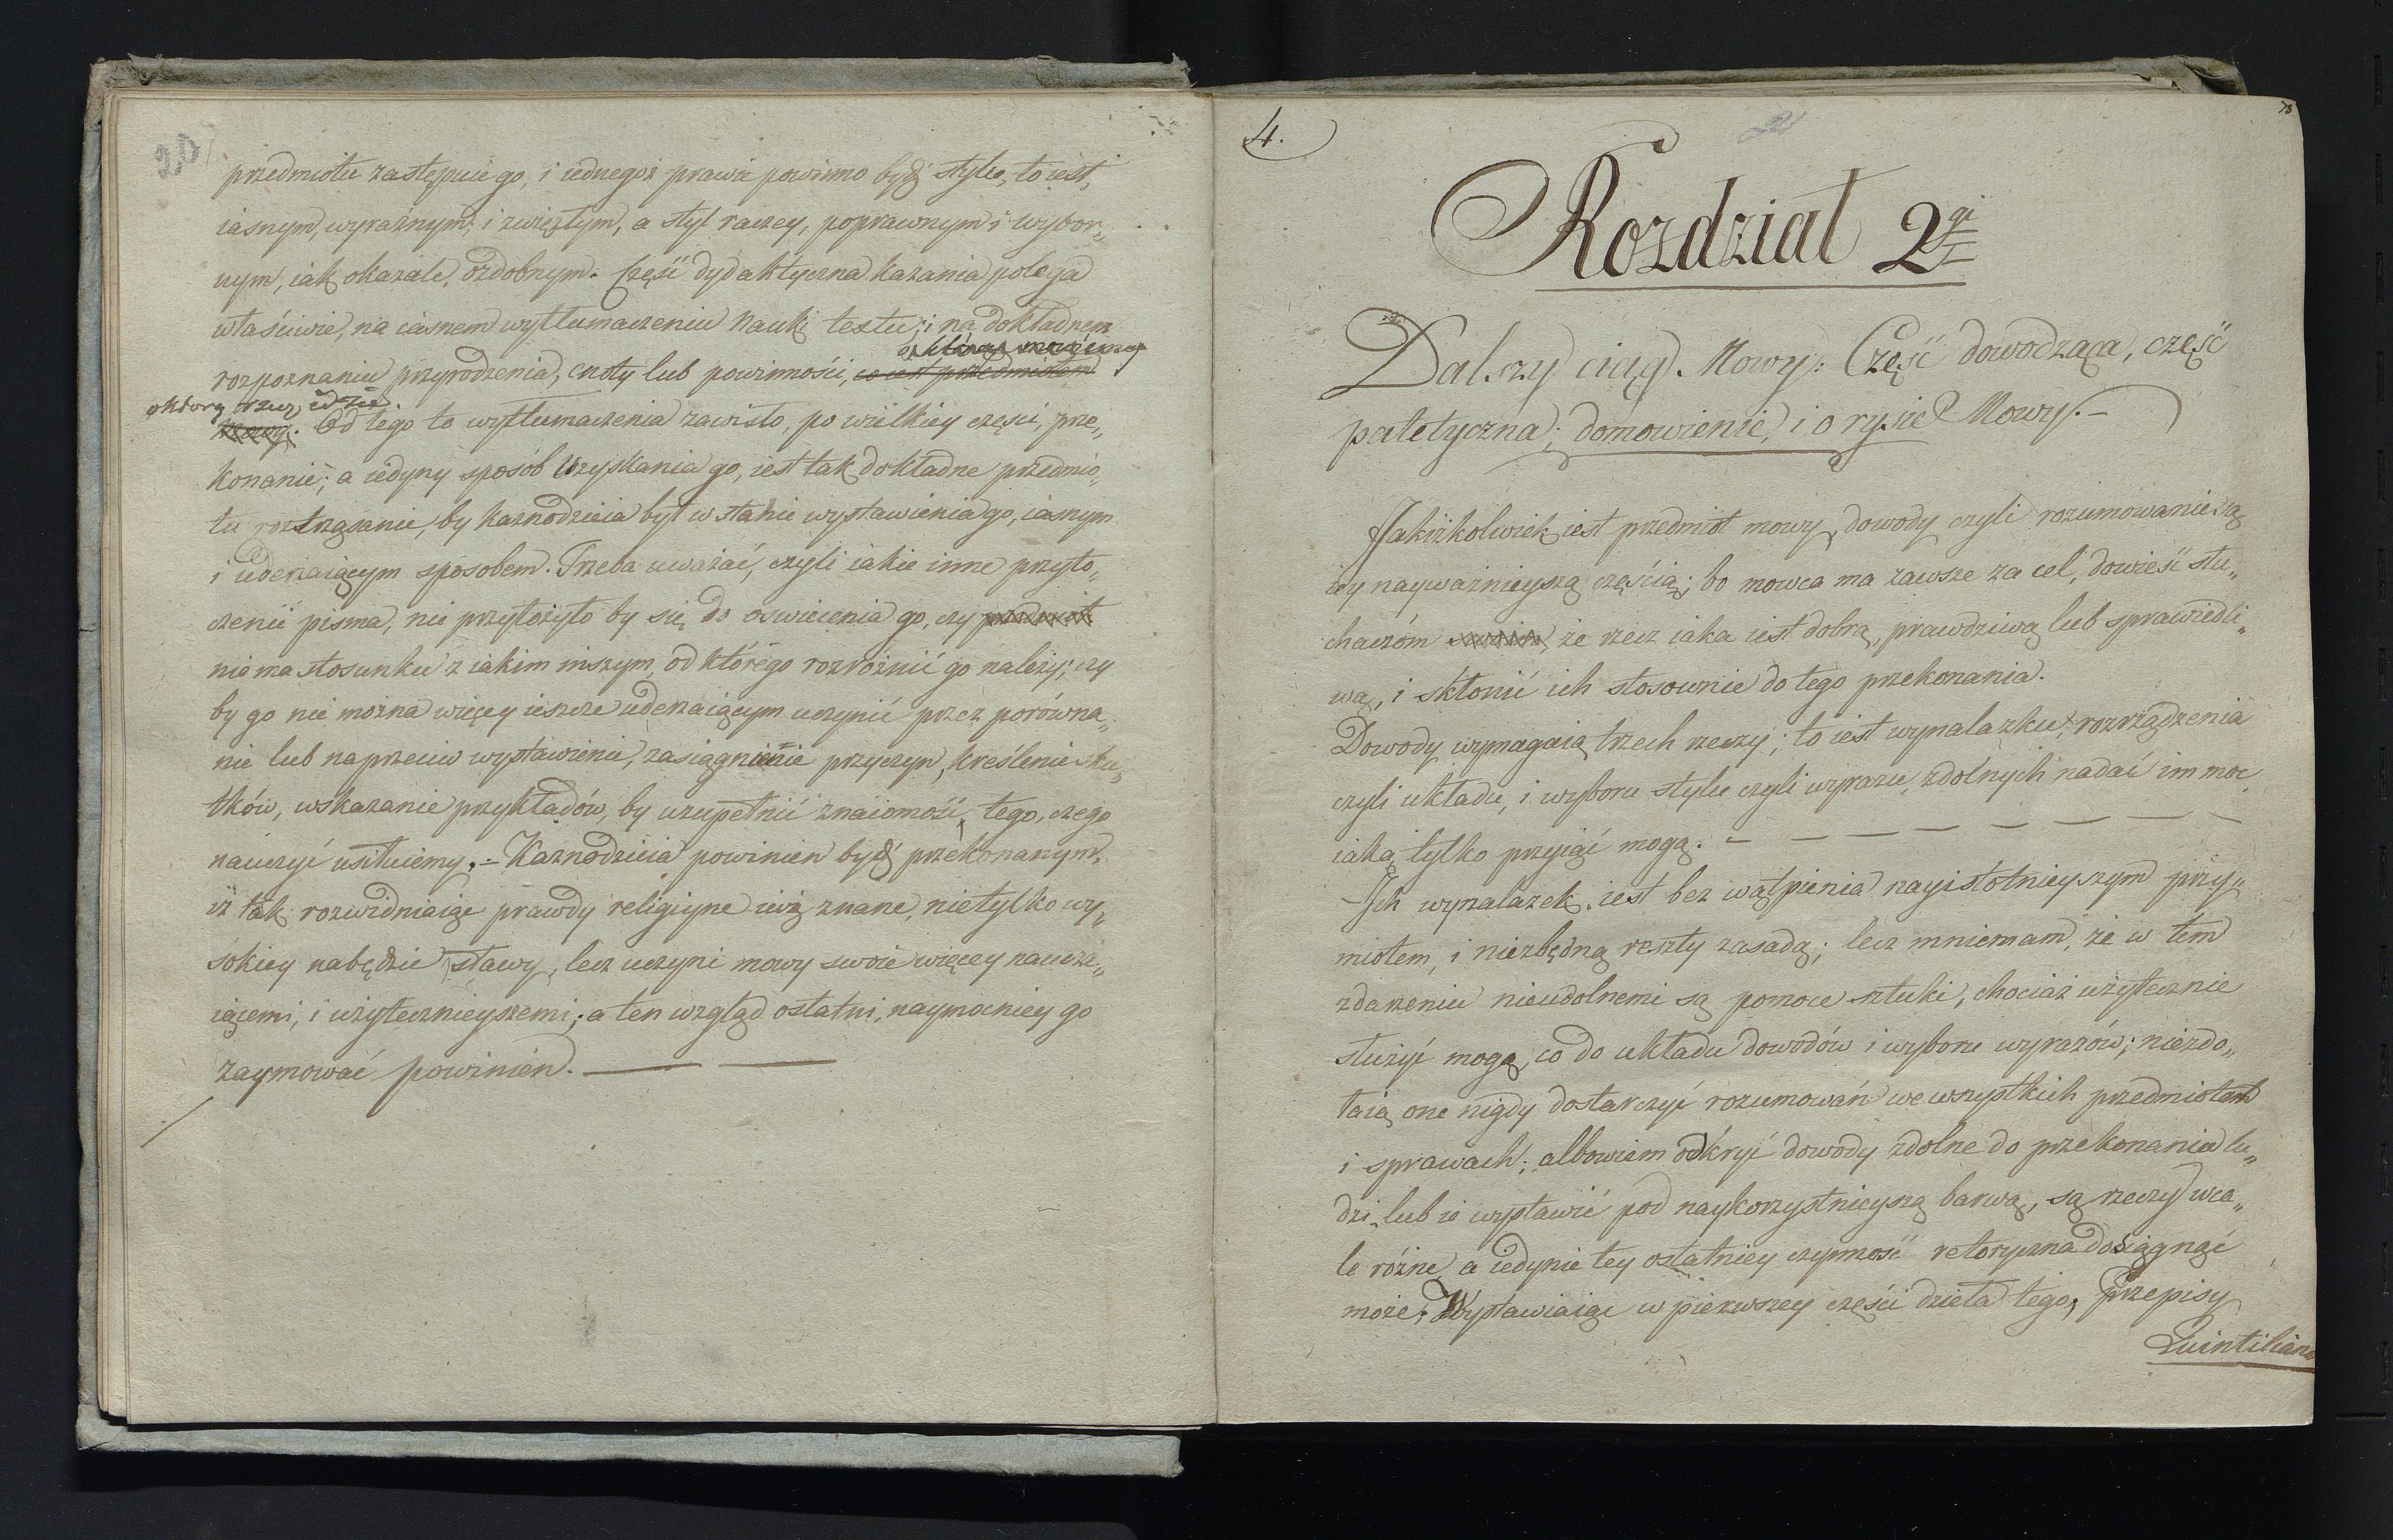 przedmiotu zastępuie go, i iednegoż prawie powinno bydź stylu, to iest,
iasnym, wyraźnym, i zwięzłym, a styl raczey, poprawnym i wybor„
nym, iak okazale, ozdobnym. Część dydaktyczna kazania polega
właściwie, na iasnem wytłumaczeniu Nauki textu, i na dokładnem
rozpoznaniu przyrodzenia, cnoty lub powinności, co iest przedmiotem
o którą rzecz idzie.
Mowy. Od tego to wytłumaczenia zawisło, po wielkiey części, prze„
konanie; a iedyny sposób uzyskania go, iest tak dokładne przedmio„
tu roztrząsanie, by kaznodzieia był w stanie wystawienia go, iasnym
i uderzaiącym sposobem. Trzeba uważać, czyli iakie inne przyto„
czenie pisma, nie przyłożyło by się do oswiecenia go, czy przedmiot
nie ma stosunku z iakim inszym, od którego rozróżnić go należy; czy
by go nie można więcey ieszcze uderzaiącym uczynić przez porówna„
nie lub naprzeciw wystawienie, zasiągnienie przyczyn, kreślenie sku„
tków, wskazanie przykładów, by uzupełnić znaiomość, tego, czego
nauczyć usiłuiemy. – Kaznodzieia powinien bydź przekonanym,
iż tak rozwidniaiąc prawdy religiyne iuż znane, nietylko wy„
sokiey nabędzie sławy, lecz uczyni mowy swoie więcey naucza„
iącemi, i użytecznieyszemi; a ten wzgląd ostatni, naymocniey go
zaymować powinien. — —
4.
73
Rozdział 2gi
Dalszy ciąg Mowy: Część dowodząca, część
patetyczna; domowienie, i o rysie Mowy. –
Jakiżkolwiek iest przedmiot mowy, dowody czyli rozumowanie są
iey nayważnieyszą częścią; bo mowca ma zawsze za cel, dowieść słu„
chaczóm że rzecz iaka iest dobrą, prawdziwą lub sprawiedli„
wą, i skłonić ich stosownie do tego przekonania.
Dowody wymagaią trzech rzeczy; to iest wynalazku, rozrządzenia
czyli układu, i wyboru stylu czyli wyrazu, zdolnych nadać im moc,
iaką tylko przyiąć mogą. – – – – – – – –
Ich wynalazek, iest bez wątpienia nayistotnieyszym przy„
miotem, i niezbędną reszty zasadą; lecz mniemam, że w tem
zdarzeniu nieudolnemi są pomoce sztuki, chociaż użytecznie
służyć mogą, co do układu dowodów i wyboru wyrazów; niezdo„
łaią one nigdy dostarczyć rozumowań we wszystkich przedmiotach
i sprawach; albowiem odkryć dowody zdolne do przekonania lu„
dzi, lub ie wystawić pod naykorzystnieyszą barwą, są rzeczy wca„
le różne, a iedynie tey ostatniey czynność retoryczna dosiągnąć
może. Wystawiaiąc w pierwszey części dzieła tego, Przepisy
Quintiliana